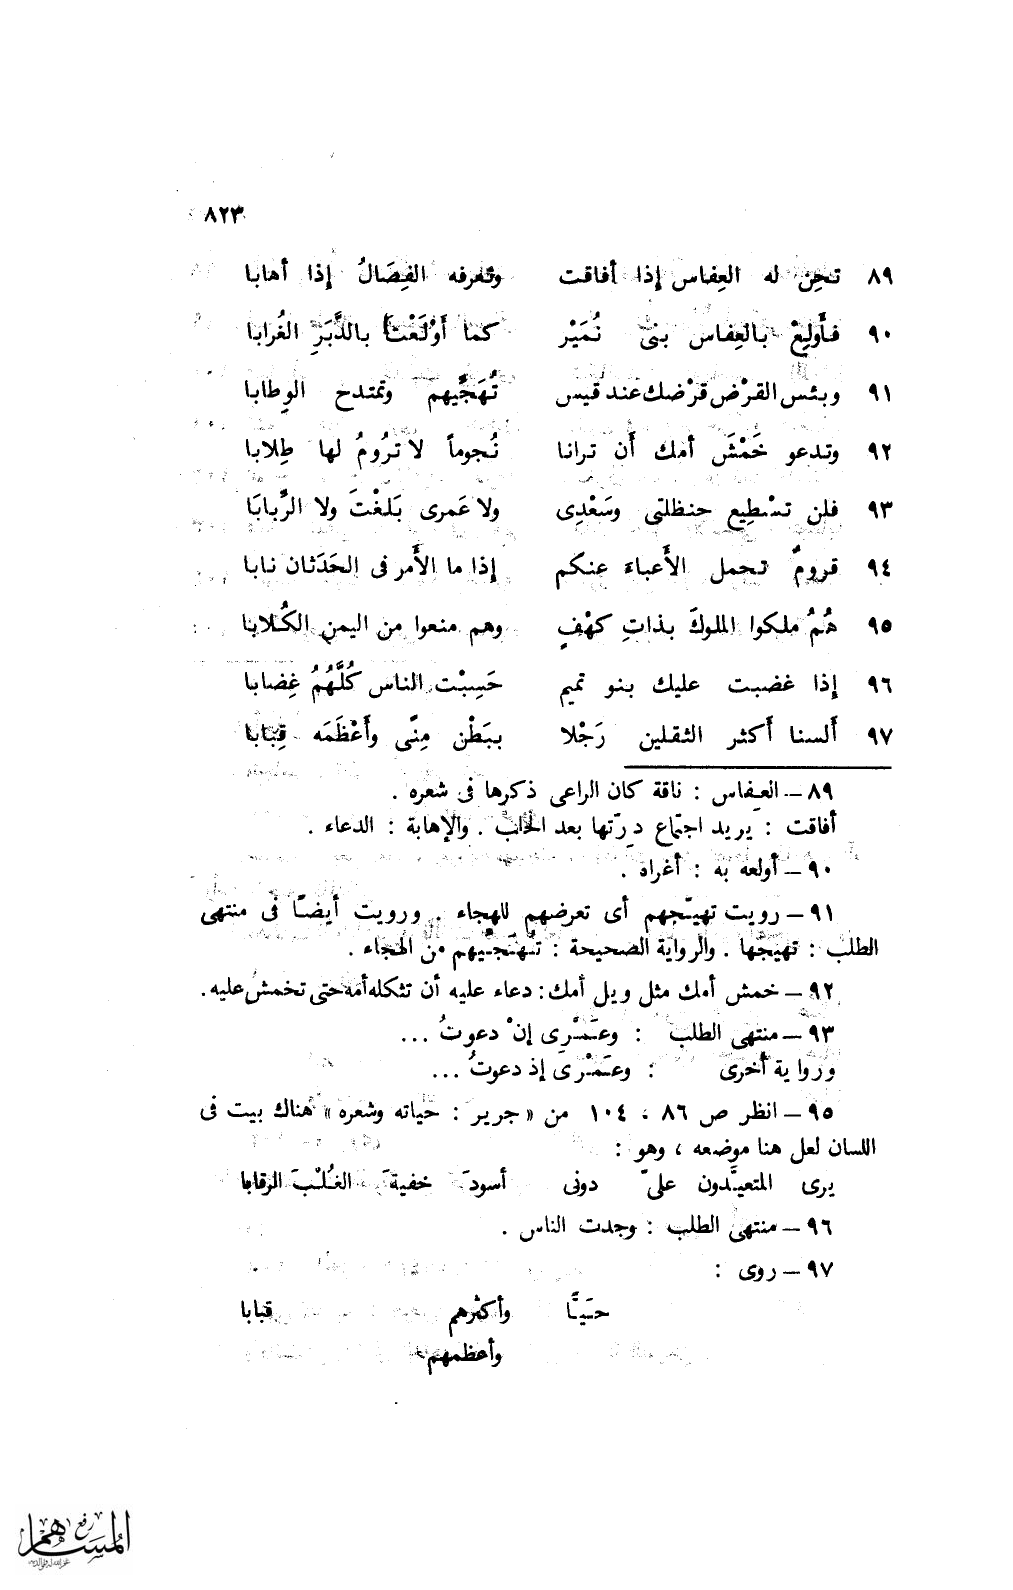 ٨٢٣
٨٩ تحِن له العِفاس إذا أفاقت وتعرفه الفِصَالُ إذا أهابا
٩٠ فأَولِعْ بالعِفاس بنى نُمَيْر كما أَوْلَعْتَ بالدَّبَرِ الغُرابا
٩١ وبئس القرْض قرْضك عند قيس تُهَجِّيهم وتمتدح الوِطابا
٩٢ وتدعو خَمْشَ أمك أَن ترانا نُجوماً لا تَرُومُ لها طِلابا
٩٣ فلن تسْطِيع حنظلتى وسَعْدِى ولا عَمرى بَلغْتَ ولا الرِّبابَا
٩٤ قرومٌ تحمل الأَعباءَ عنكم إذا ما الأَمر فى الحَدَثان نابا
٩٥ هُمُ ملكوا الملوكَ بذاتِ كهْفٍ وهم منعوا من اليمنِ الكُلابا
٩٦ إذا غضبت عليك بنو تميم حَسِبْت الناس كُلَّهُمُ غِضابا
٩٧ أَلسنا أَكثر الثقلين رَجْلا ببَطْن مِنًى وأَعْظَمَه قِبابا
٨٩ – العِفاس : ناقة كان الراعى ذكرها فى شعره .
أفاقت : يريد اجتماع دِرّتها بعد الحلب . والإهابة : الدعاء .
٩٠ – أولعه به : أغراه .
٩١ – رويت تهيّجهم أى تعرضهم للهجاء . ورويت أيضًا فى منتهى
الطلب : تهيجّها . والرواية الصحيحة : تُهَجِّيهم من الهجاء .
٩٢ – خمش أمك مثل ويل أمك : دعاء عليه أن تثكله أمه حتى تخمش عليه .
٩٣ – منتهى الطلب : وعَمْرِى إنْ دعوتُ ...
ورواية أخرى : وعَمْرى إذ دعوتُ ...
٩٥ – انظر ص ٨٦ ، ١٠٤ من « جرير : حياته وشعره » هناك بيت فى
اللسان لعل هنا موضعه ، وهو :
يرى المتعيَّدون علىّ دونى أسودَ خفيةَ الغُلْبَ الرقابا
٩٦ – منتهى الطلب : وجدت الناس .
٩٧ – روى :
حَيًّا وأكثرهم قبابا
وأعظمهم
المساهم